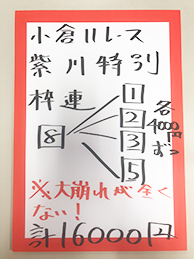 小倉11レース
紫川特別
枠連
8
1
2
3
5
各4000円ずつ
※大崩れは全く
ない!
計16000円